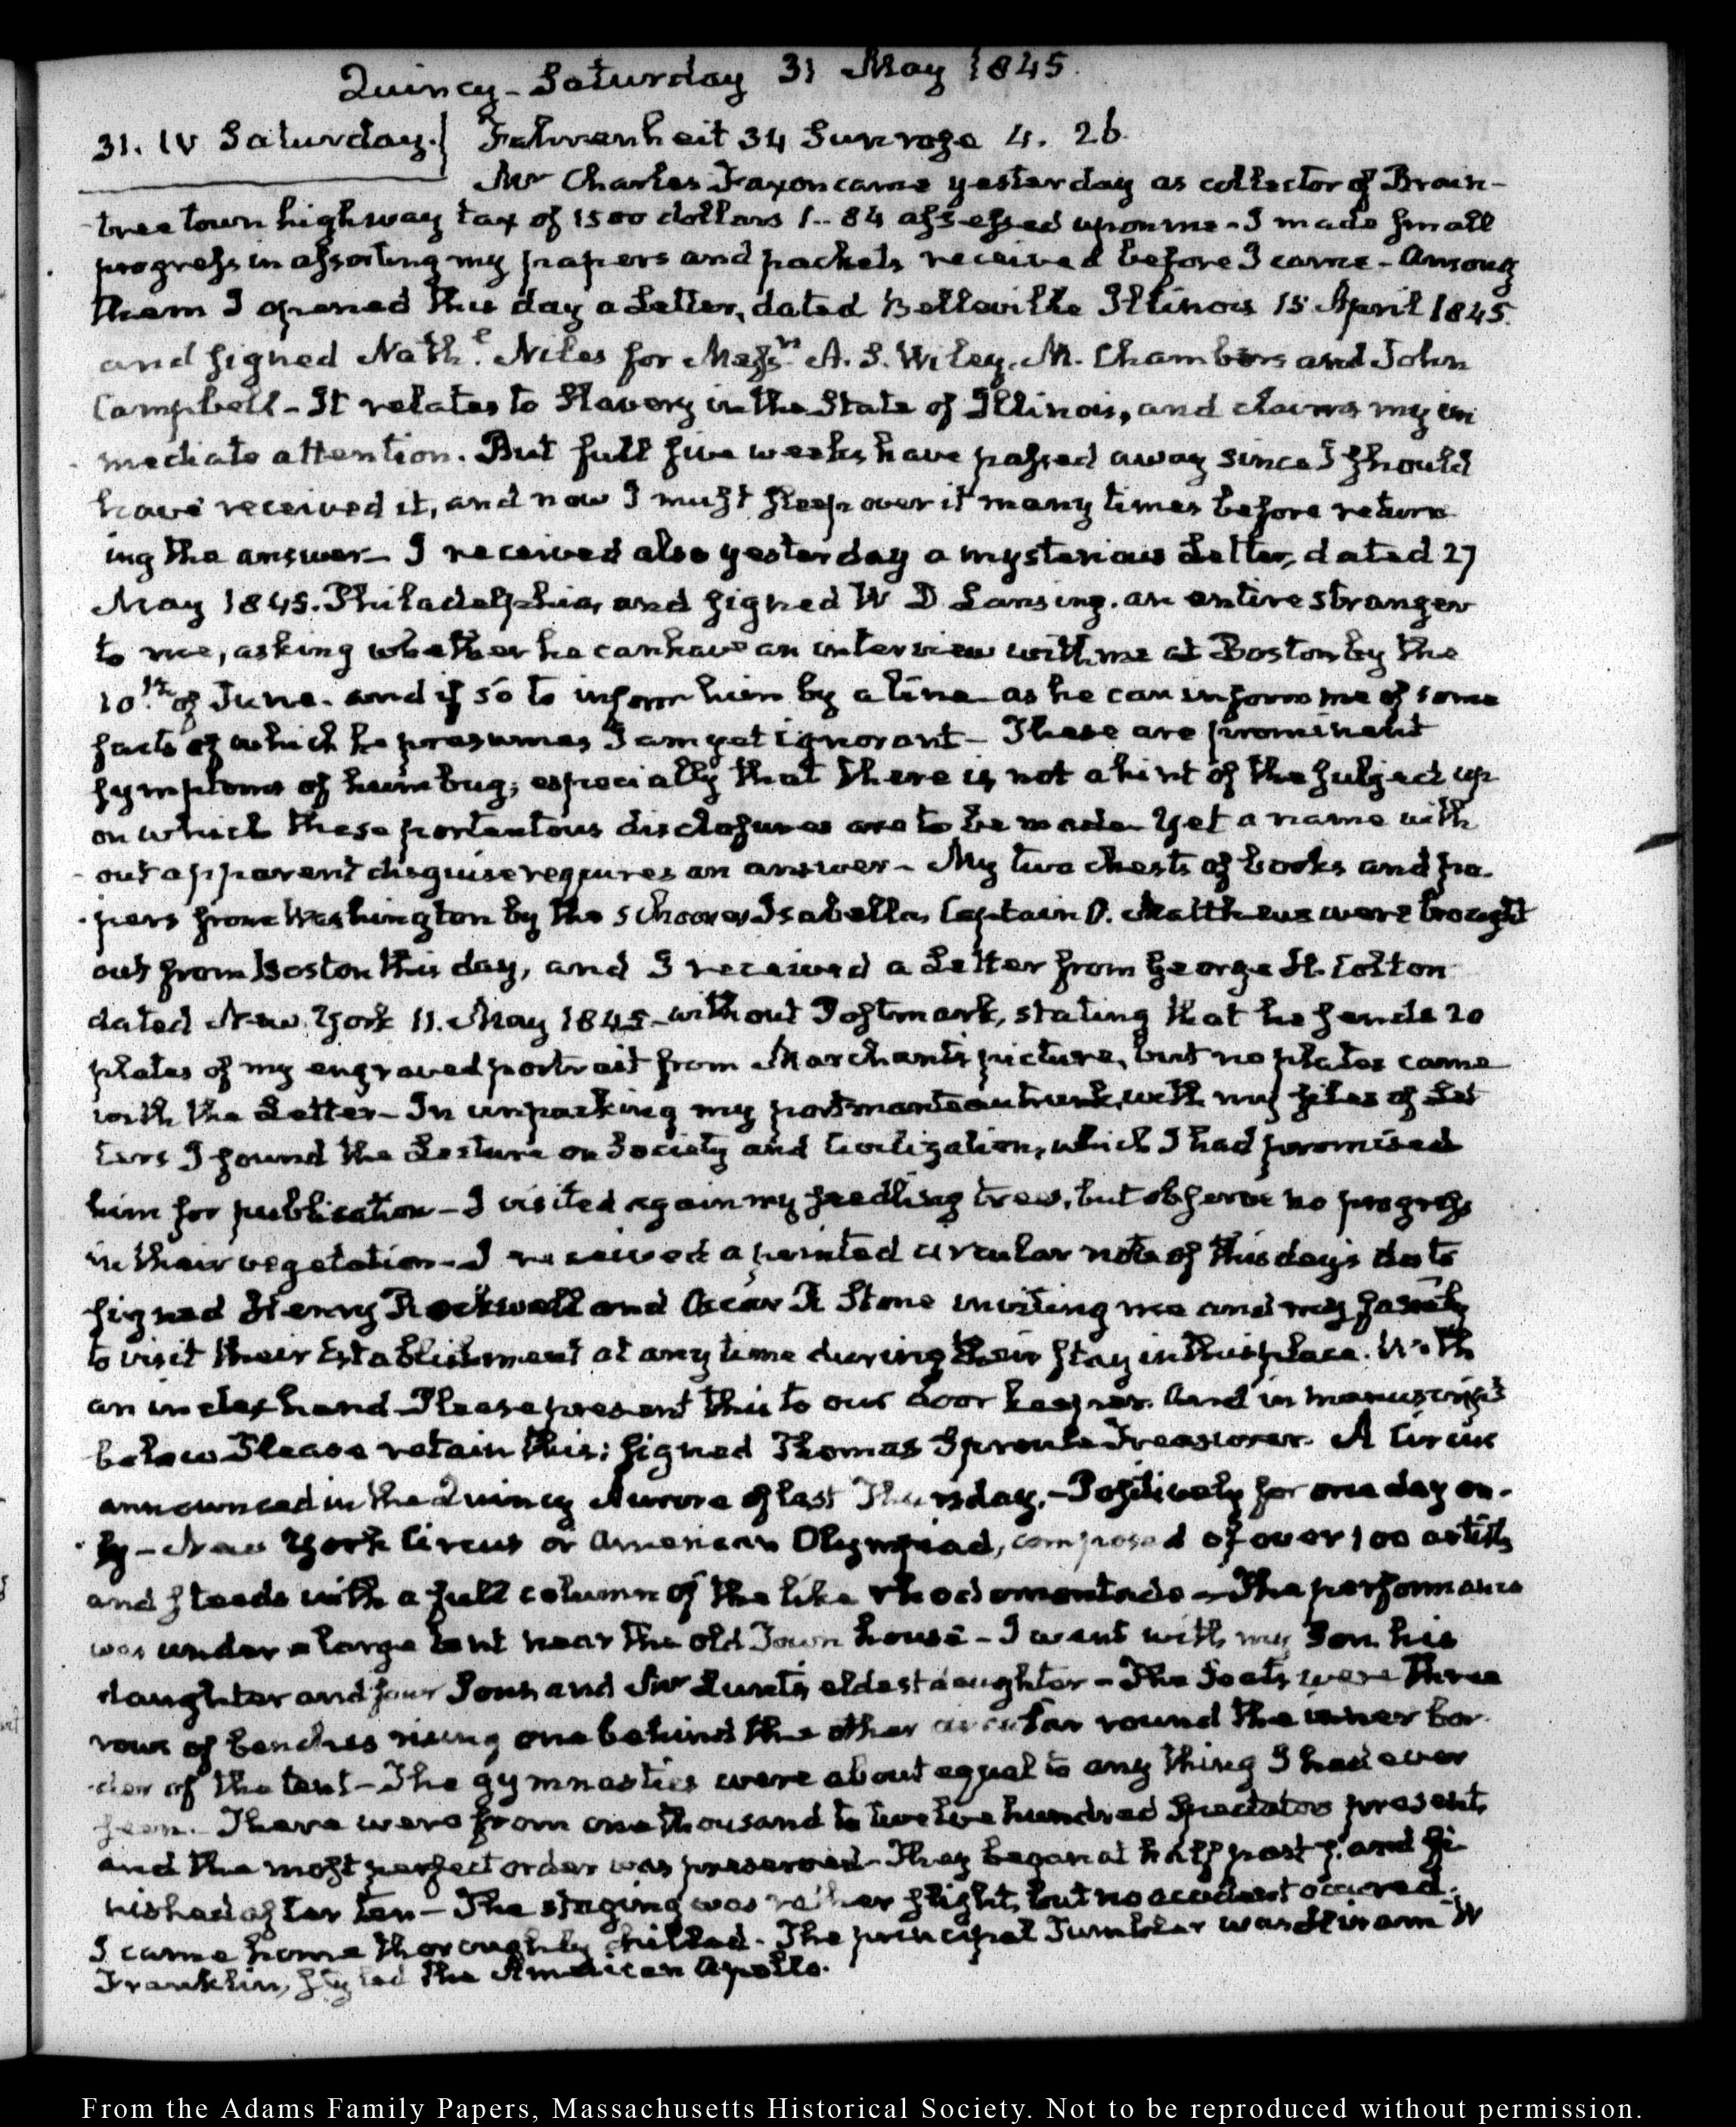 Quincy - Saturday 31 May 1845.
31. IV Saturday. Fahrenheit 34 Sun rose 4. 26.
Mr Charles Faxon came yesterday as collector of Brain-
tree town highway tax of 1500 dollars 1.. 84 assessed upon me - I made small
progress in assorting my papers and packets received before I came - Among
them I opened this day a Letter, dated Belleville Illinois 15 April 1845.
and signed Nath.e Niles for Messrs A. S. Wiley. M. Chambers and John
Campbell - It relates to Slavery in the State of Illinois, and claims my im
mediate attention. But full five weeks have passed away since I should
have received it, and now I must sleep over it many times before return
ing the answer - I received also yesterday a mysterious Letter, dated 27
May 1845. Philadelphia, and signed W D Lansing. an entire stranger
to me, asking whether he can have an interview with me at Boston by the
10th of June. and if so to inform him by a line as he can inform me of some
facts of which he presumes I am yet ignorant - These are prominent
symptoms of humbug; especially that there is not a hint of the subject up
on which these portentous disclosures are to be made - Yet a name with
out apparent disguise requires an answer - My two chests of books and pa-
pers from Washington by the Schooner Isabella, Captain O. Matthews were brought
out from Boston this day, and I received a Letter from George H. Colton
dated New York 11. May 1845 - without Postmark, stating that he sends 20
plates of my engraved portrait from Marchant's picture, but no plates came
with the Letter - In unpacking my portmanteau trunk, with my files of Let
ters I found the Lecture on Society and Civilization, which I had promised
him for publication - I visited again my seedling trees, but observe no progress
in their vegetation - I received a printed circular note of this day's date
signed Henry Rockwell and Oscar R Stone inviting me and my family
to visit their Establishment at any time during their stay in this place. With
an index hand Please present this to our door keeper. And in manuscript
below Please retain this; signed Thomas Sproule Treasurer. A Circus
announced in the Quincy Aurora of last Thursday. - Positively for one day on-
ly - New York Circus or American Olympiad, composed of over 100 artists
and steeds with a full column of the like rhodomontade - The performance
was under a large tent near the old Town house - I went with my Son his
daughter and four Sons and Mr Lunt's eldest daughter - The Seats were three
rows of benches rising one behind the other circular round the inner bor
der of the tent - The gymnastics were about equal to any thing I had ever
seen. There were from one thousand to twelve hundred Spectators present,
and the most perfect order was preserved - They began at half past 7. and fi
nished after ten - The staging was rather slight, but no accident occurred.
I came home thoroughly chilled. The principal Tumbler was Hiram W
Franklin, styled the American Apollo.
From the Adams Family Papers, Massachusetts Historical Society. Not to be reproduced without permission.